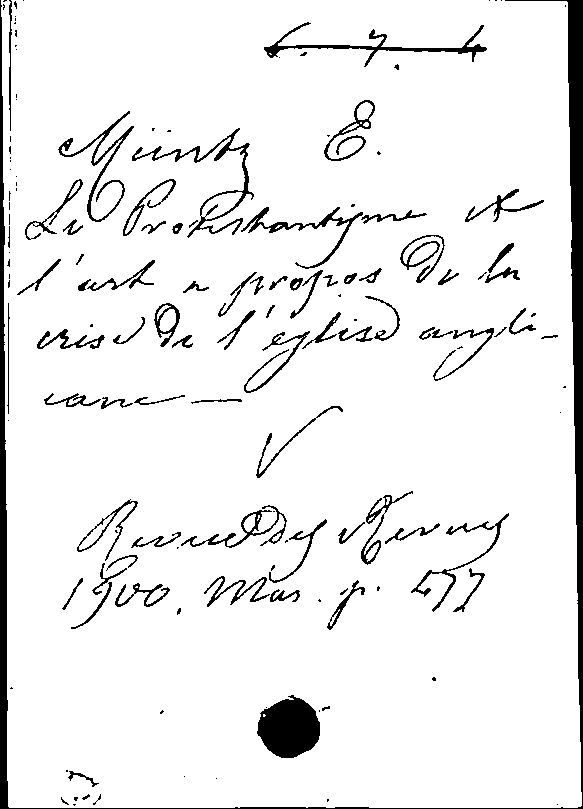 6. 7. 4
Müntz E.
Le Protestantisme et
l'art a propos de la
crise de l'église angli-
cane —
V
Revue des Revues
1900. Mars. p. 477